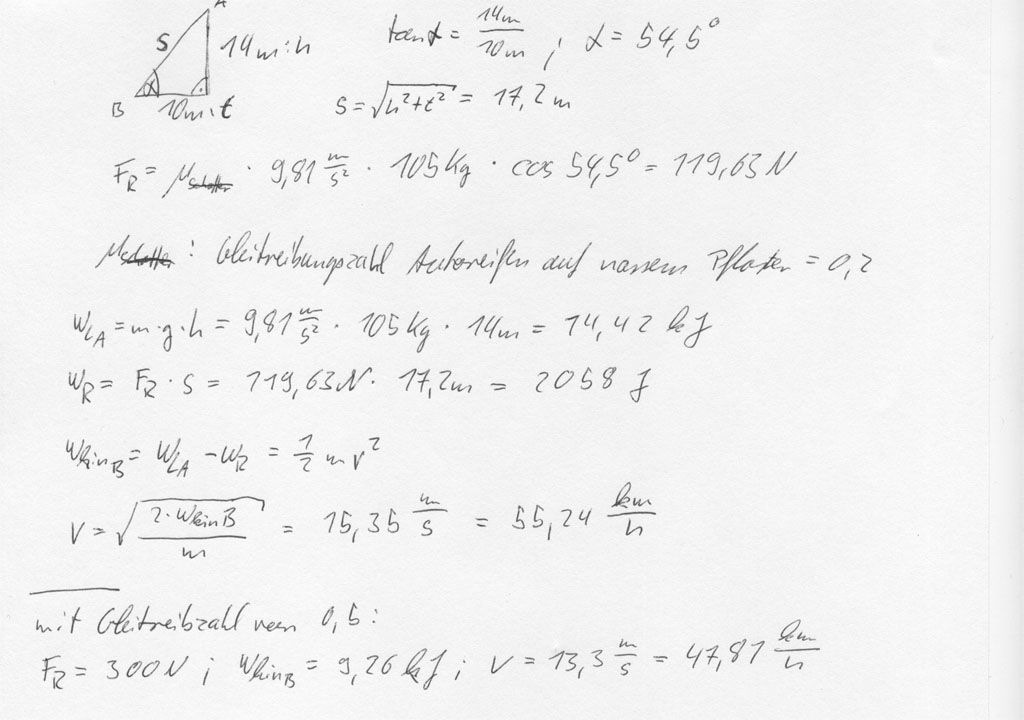 A
S 14m=h tan α = 14m/10m ; α = 54,5°
B 10m=t S = √(h²+t²) = 17,2m
F_R = μ · 9,81 m/s² · 105 Kg · cos 54,5° = 119,63 N
μ : Gleitreibungszahl Autoreifen auf nassem Pflaster = 0,2
W_LA = m·g·h = 9,81 m/s² · 105 Kg · 14m = 14,42 kJ
W_R = F_R · S = 119,63 N · 17,2m = 2058 J
WkinB = W_LA - W_R = 1/2 m v²
V = √(2·WkinB/m) = 15,35 m/s = 55,24 km/h
mit Gleitreibzahl von 0,5:
F_R = 300 N ; WkinB = 9,26 kJ ; V = 13,3 m/s = 47,81 km/h